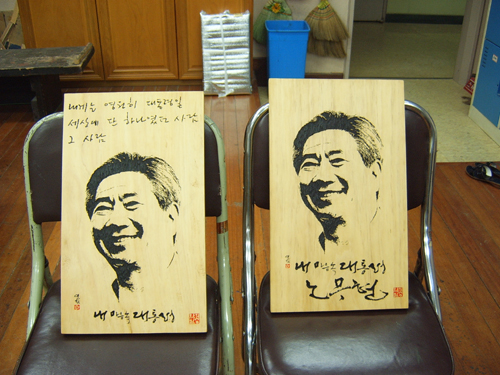 내게는 영원히 대통령일
세상에 단 하나였던 사람
그 사람
내 마음속 대통령
내 마음속 대통령
노무현